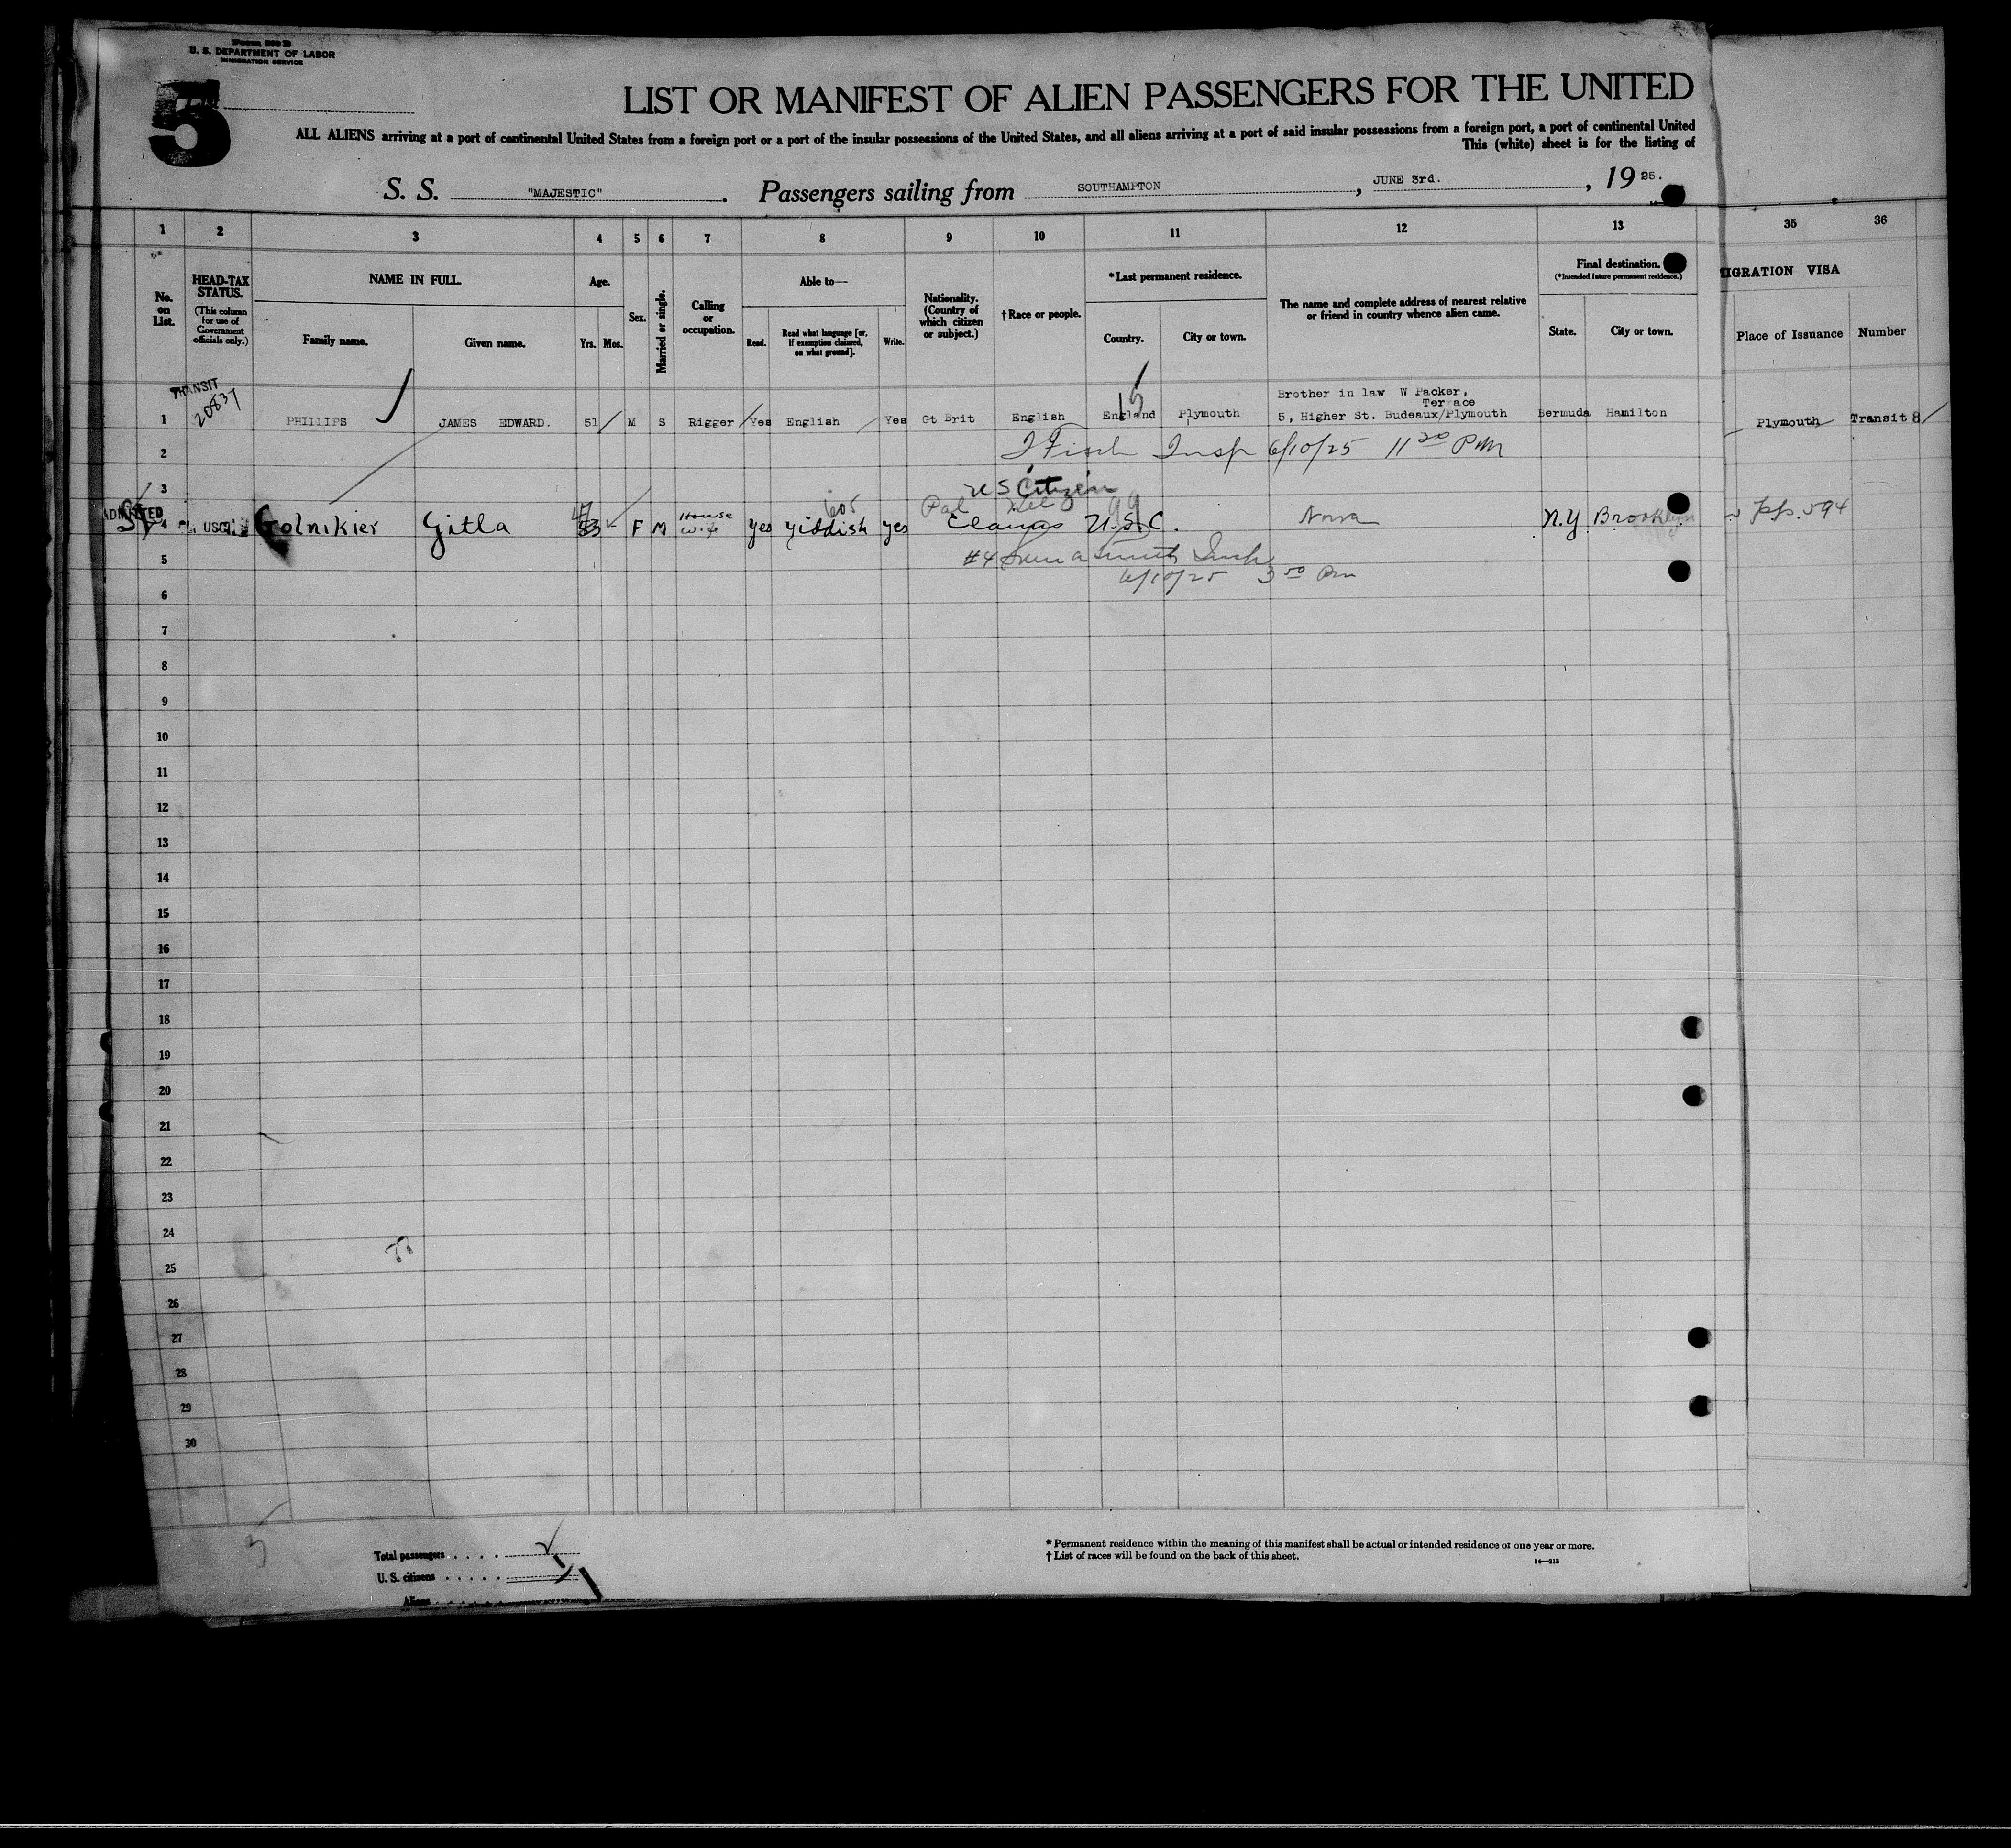 Form 500 B
U. S. DEPARTMENT OF LABOR
IMMIGRATION SERVICE
5
LIST OR MANIFEST OF ALIEN PASSENGERS FOR THE UNITED
ALL ALIENS arriving at a port of continental United States from a foreign port or a port of the insular possessions of the United States, and all aliens arriving at a port of said insular possessions from a foreign port, a port of continental United
This (white) sheet is for the listing of
S. S. "MAJESTIC". Passengers sailing from SOUTHAMPTON, JUNE 3rd., 1925.
1 2 3 4 5 6 7 8 9 10 11 12 13 35 36
No. on List.
HEAD-TAX STATUS.
(This column for use of Government officials only.)
NAME IN FULL.
Family name. Given name.
Age.
Yrs. Mos.
Sex.
Married or single.
Calling or occupation.
Able to—
Read. Read what language [or, if exemption claimed, on what ground]. Write.
Nationality. (Country of which citizen or subject.)
†Race or people.
*Last permanent residence.
Country. City or town.
The name and complete address of nearest relative or friend in country whence alien came.
Final destination.
(*Intended future permanent residence.)
State. City or town.
IGRATION VISA
Place of Issuance Number
TRANSIT
20837
1 PHILLIPS JAMES EDWARD. 51 M S Rigger Yes English Yes Gt Brit English England Plymouth Brother in law W Packer, Terrace 5, Higher St. Budeaux/Plymouth Bermuda Hamilton Plymouth Transit 8
2 Insp 6/10/25 11 30 PM
3 U S Citizen
ADMITTED
4 USC Golnikier Gitla 53 F M House wife yes Yiddish yes Claims U.S.C. N.Y Brooklyn pp. 594
5 #4
6/10/25 3 50 Pm
6
7
8
9
10
11
12
13
14
15
16
17
18
19
20
21
22
23
24
25
26
27
28
29
30
5
Total passengers
U. S. citizens
Aliens
* Permanent residence within the meaning of this manifest shall be actual or intended residence of one year or more.
† List of races will be found on the back of this sheet.
14—213